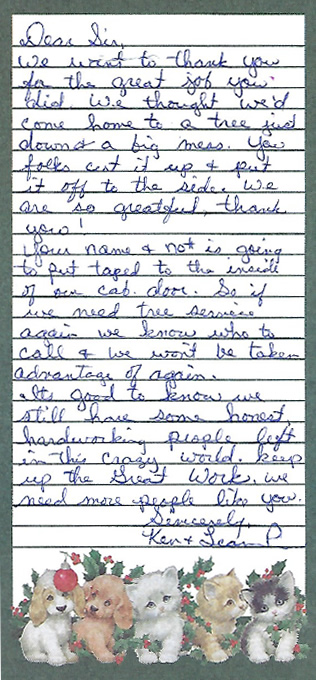 Dear Sir,
We want to thank you
for the great job you
did. We thought we'd
come home to a tree just
down & a big mess. You
folks cut it up & put
it off to the side. We
are so greatful, thank
you!
Your name & not is going
to put taped to the inside
of our cab. door. So if
we need tree service
again we know who to
call & we won't be taken
advantage of again.
Its good to know we
still have some honest
hardworking people left
in this crazy world. keep
up the Great Work. we
need more people like you.
Sincerely,
Ken & Jean P